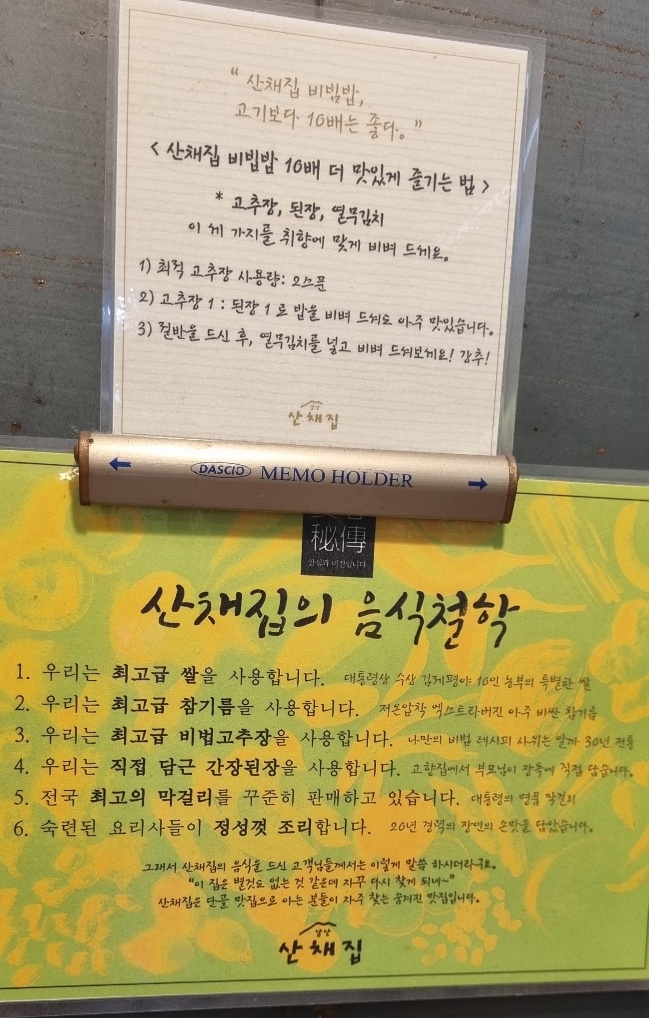 “ 산채집 비빔밥,
고기보다 10배는 좋다. ”
< 산채집 비빕밥 10배 더 맛있게 즐기는 법 >
* 고추장, 된장, 열무김치
이 세 가지를 취향에 맞게 비벼 드세요.
1) 최적 고추장 사용량: 2스푼
2) 고추장 1 : 된장 1 로 밥을 비벼 드셔도 아주 맛있습니다.
3) 절반을 드신 후, 열무김치를 넣고 비벼 드셔보세요! 강추!
남산
산채집
DASCIO MEMO HOLDER
秘傳
산채집의 음식철학
1. 우리는 최고급 쌀을 사용합니다. 대통령상 수상 김제평야 10인 농부의 특별한 쌀
2. 우리는 최고급 참기름을 사용합니다. 저온압착 엑스트라버진 아주 비싼 참기름
3. 우리는 최고급 비법고추장을 사용합니다. 나만의 비법 레시피 사위는 말까 30년 전통
4. 우리는 직접 담근 간장된장을 사용합니다. 고향집에서 부모님이 장독에 직접 담습니다.
5. 전국 최고의 막걸리를 꾸준히 판매하고 있습니다. 대통령의 명품 막걸리
6. 숙련된 요리사들이 정성껏 조리합니다. 20년 경력의 장인의 손맛을 담았습니다.
그래서 산채집의 음식을 드신 고객님들께서는 이렇게 말씀 하시더라구요.
“이 집은 별것도 없는 것 같은데 자꾸 다시 찾게 되네~”
산채집은 단골 맛집으로 아는 분들이 자주 찾는 숨겨진 맛집입니다.
남산
산채집